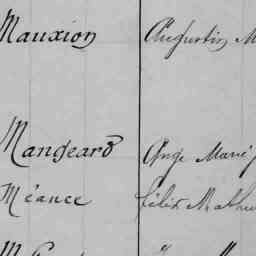 Mauxion Augustin M
Mangeard Ange Marie
Méance Félix Mathu